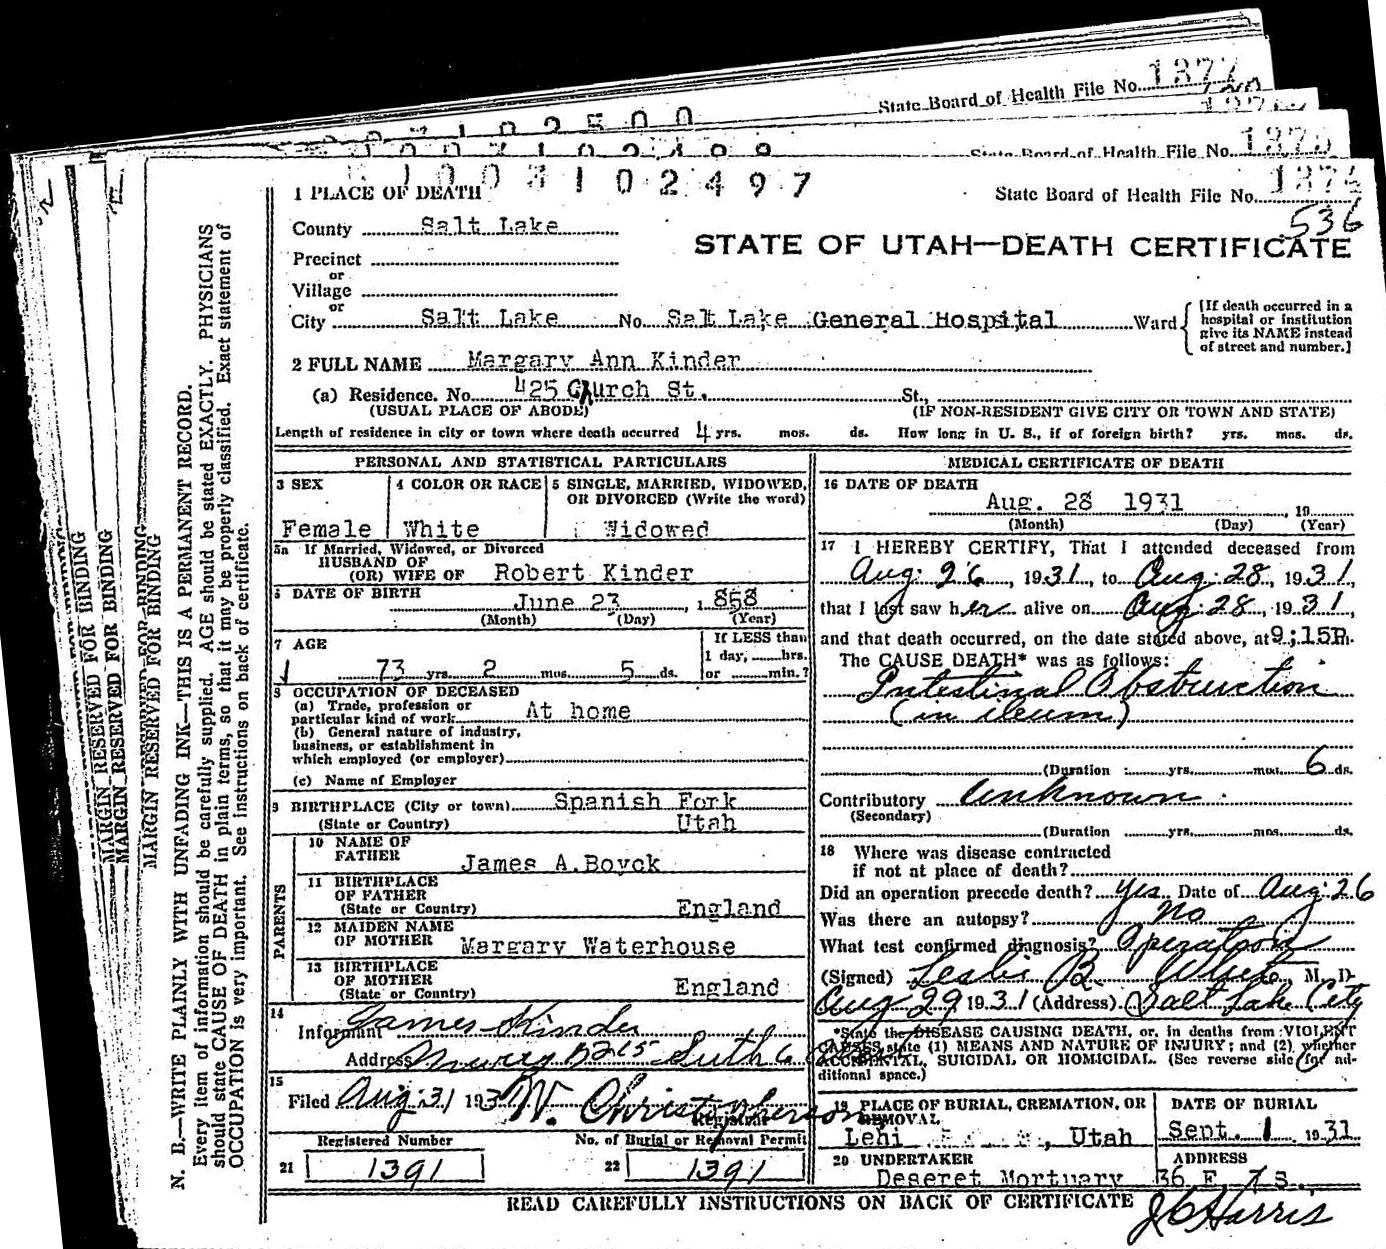 State Board of Health File No. 1877
State Board of Health File No. 1875
1003102497
1 PLACE OF DEATH
State Board of Health File No. 1874
536
County Salt Lake
STATE OF UTAH—DEATH CERTIFICATE
Precinct
or
Village
or
City Salt Lake No. Salt Lake General Hospital Ward
[If death occurred in a
hospital or institution
give its NAME instead
of street and number.]
2 FULL NAME Margary Ann Kinder
(a) Residence. No. 425 Church St. St.,
(USUAL PLACE OF ABODE) (IF NON-RESIDENT GIVE CITY OR TOWN AND STATE)
Length of residence in city or town where death occurred 4 yrs. mos. ds. How long in U. S., if of foreign birth? yrs. mos. ds.
PERSONAL AND STATISTICAL PARTICULARS
3 SEX
Female
4 COLOR OR RACE
White
5 SINGLE, MARRIED, WIDOWED,
OR DIVORCED (Write the word)
Widowed
5a If Married, Widowed, or Divorced
HUSBAND OF
(OR) WIFE OF Robert Kinder
6 DATE OF BIRTH
June 23, 1858
(Month) (Day) (Year)
7 AGE
73 yrs. 2 mos. 5 ds.
If LESS than
1 day, hrs.
or min.?
8 OCCUPATION OF DECEASED
(a) Trade, profession or
particular kind of work At home
(b) General nature of industry,
business, or establishment in
which employed (or employer)
(c) Name of Employer
9 BIRTHPLACE (City or town) Spanish Fork
(State or Country) Utah
PARENTS
10 NAME OF
FATHER James A. Boyck
11 BIRTHPLACE
OF FATHER
(State or Country) England
12 MAIDEN NAME
OF MOTHER Margary Waterhouse
13 BIRTHPLACE
OF MOTHER
(State or Country) England
14
Informant James Kinder
Address Murray
15
Filed Aug. 31 193 W. Christopherson
Registrar
Registered Number No. of Burial or Removal Permit
21 1391 22 1391
MEDICAL CERTIFICATE OF DEATH
16 DATE OF DEATH
Aug. 28 1931, 19
(Month) (Day) (Year)
17 I HEREBY CERTIFY, That I attended deceased from
Aug. 26, 1931, to Aug. 28, 1931,
that I last saw her alive on Aug. 28, 1931,
and that death occurred, on the date stated above, at 9:15P.m.
The CAUSE DEATH* was as follows:
Intestinal Obstruction
(in ileum)
(Duration yrs. mos. 6 ds.
Contributory Unknown.
(Secondary)
(Duration yrs. mos. ds.
18 Where was disease contracted
if not at place of death?
Did an operation precede death? Yes Date of Aug. 26
Was there an autopsy? no
What test confirmed diagnosis? Operation
(Signed) Leslie B. White M. D.
Aug 29 1931 (Address) Salt Lake City
*State the DISEASE CAUSING DEATH, or, in deaths from VIOLENT
CAUSES, state (1) MEANS AND NATURE OF INJURY; and (2) whether
ACCIDENTAL, SUICIDAL OR HOMICIDAL. (See reverse side for ad-
ditional space.)
19 PLACE OF BURIAL, CREMATION, OR
REMOVAL
Lehi, Utah
DATE OF BURIAL
Sept. 1 1931
20 UNDERTAKER
Deseret Mortuary
ADDRESS
36 E. 7 S.
READ CAREFULLY INSTRUCTIONS ON BACK OF CERTIFICATE
J C Harris
MARGIN RESERVED FOR BINDING
MARGIN RESERVED FOR BINDING
MARGIN RESERVED FOR BINDING
N. B.—WRITE PLAINLY WITH UNFADING INK—THIS IS A PERMANENT RECORD.
Every item of information should be carefully supplied. AGE should be stated EXACTLY. PHYSICIANS
should state CAUSE OF DEATH in plain terms, so that it may be properly classified. Exact statement of
OCCUPATION is very important. See instructions on back of certificate.